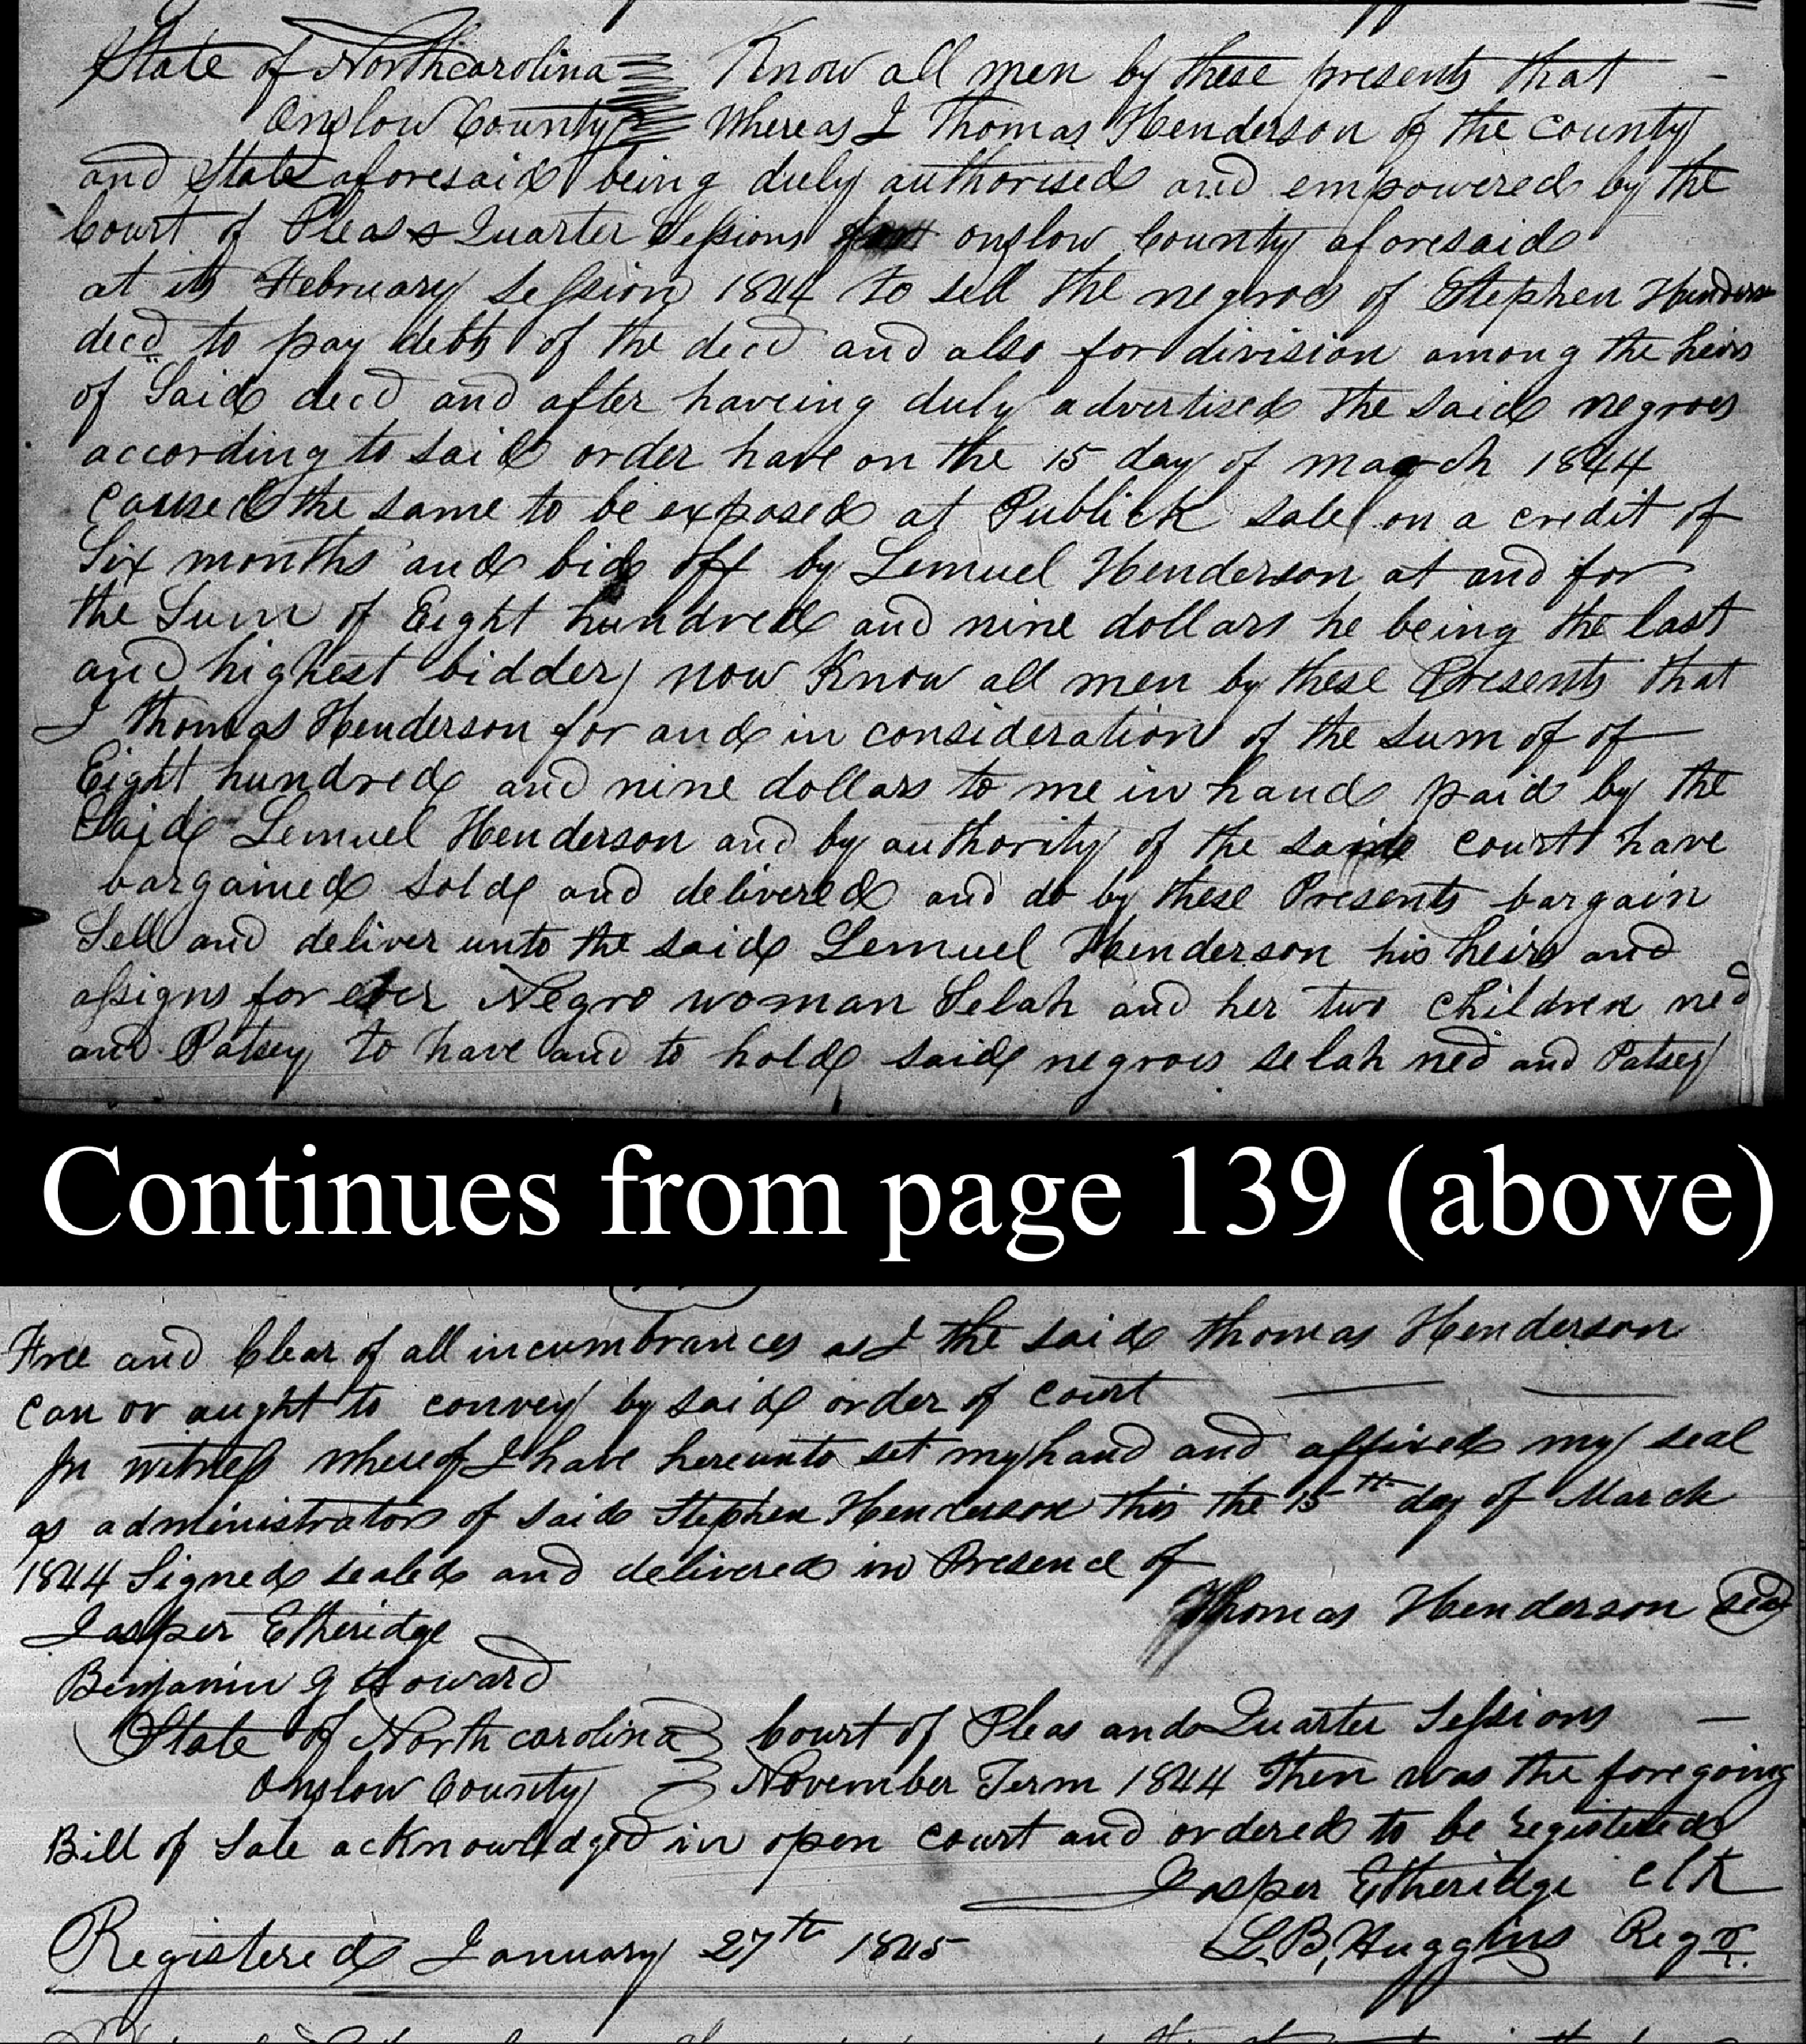 State of Northcarolina Know all men by these presents that –
Onslow County Whereas I Thomas Henderson of the county
and State aforesaid being duly authorised and empowered by the
Court of Pleas & Quarter Sessions onslow County aforesaid
at its February Session 1844 to sell the negroes of Stephen Henderson
decd to pay debts of the decd and also for division among the heirs
of Said decd and after haveing duly advertised the said negroes
according to said order have on the 15 day of march 1844
Caused the same to be exposed at Publick sale on a credit of
Six months and bid off by Lemuel Henderson at and for
the Sum of Eight hundred and nine dollars he being the last
and highest bidder now Know all men by these Presents that
I thomas Henderson for and in consideration of the sum of of
Eight hundred and nine dollars to me in hand paid by the
Said Lemuel Henderson and by authority of the said court have
bargained sold and delivered and do by these Presents bargain
Sell and deliver unto the said Lemuel Henderson his heirs and
assigns for ever Negro woman Selah and her two children ned
and Patsey to have and to hold said negroes selah ned and Patsey
Continues from page 139 (above)
Free and Clear of all incumbrances as I the said thomas Henderson
can or aught to convey by said order of court
In witness whereof I have hereunto set my hand and affixed my seal
as administrator of said Stephen Henderson this the 15th day of March
1844 Signed sealed and delivered in Presence of
Thomas Henderson seal
Jasper Etheridge
Benjamin G Howard
State of North carolina Court of Pleas and Quarter Sessions –
Onslow County November Term 1844 Then was the foregoing
Bill of Sale acknowledged in open court and ordered to be registered
Jasper Etheridge clk
Registered January 27th 1845 L.B. Huggins Regr.